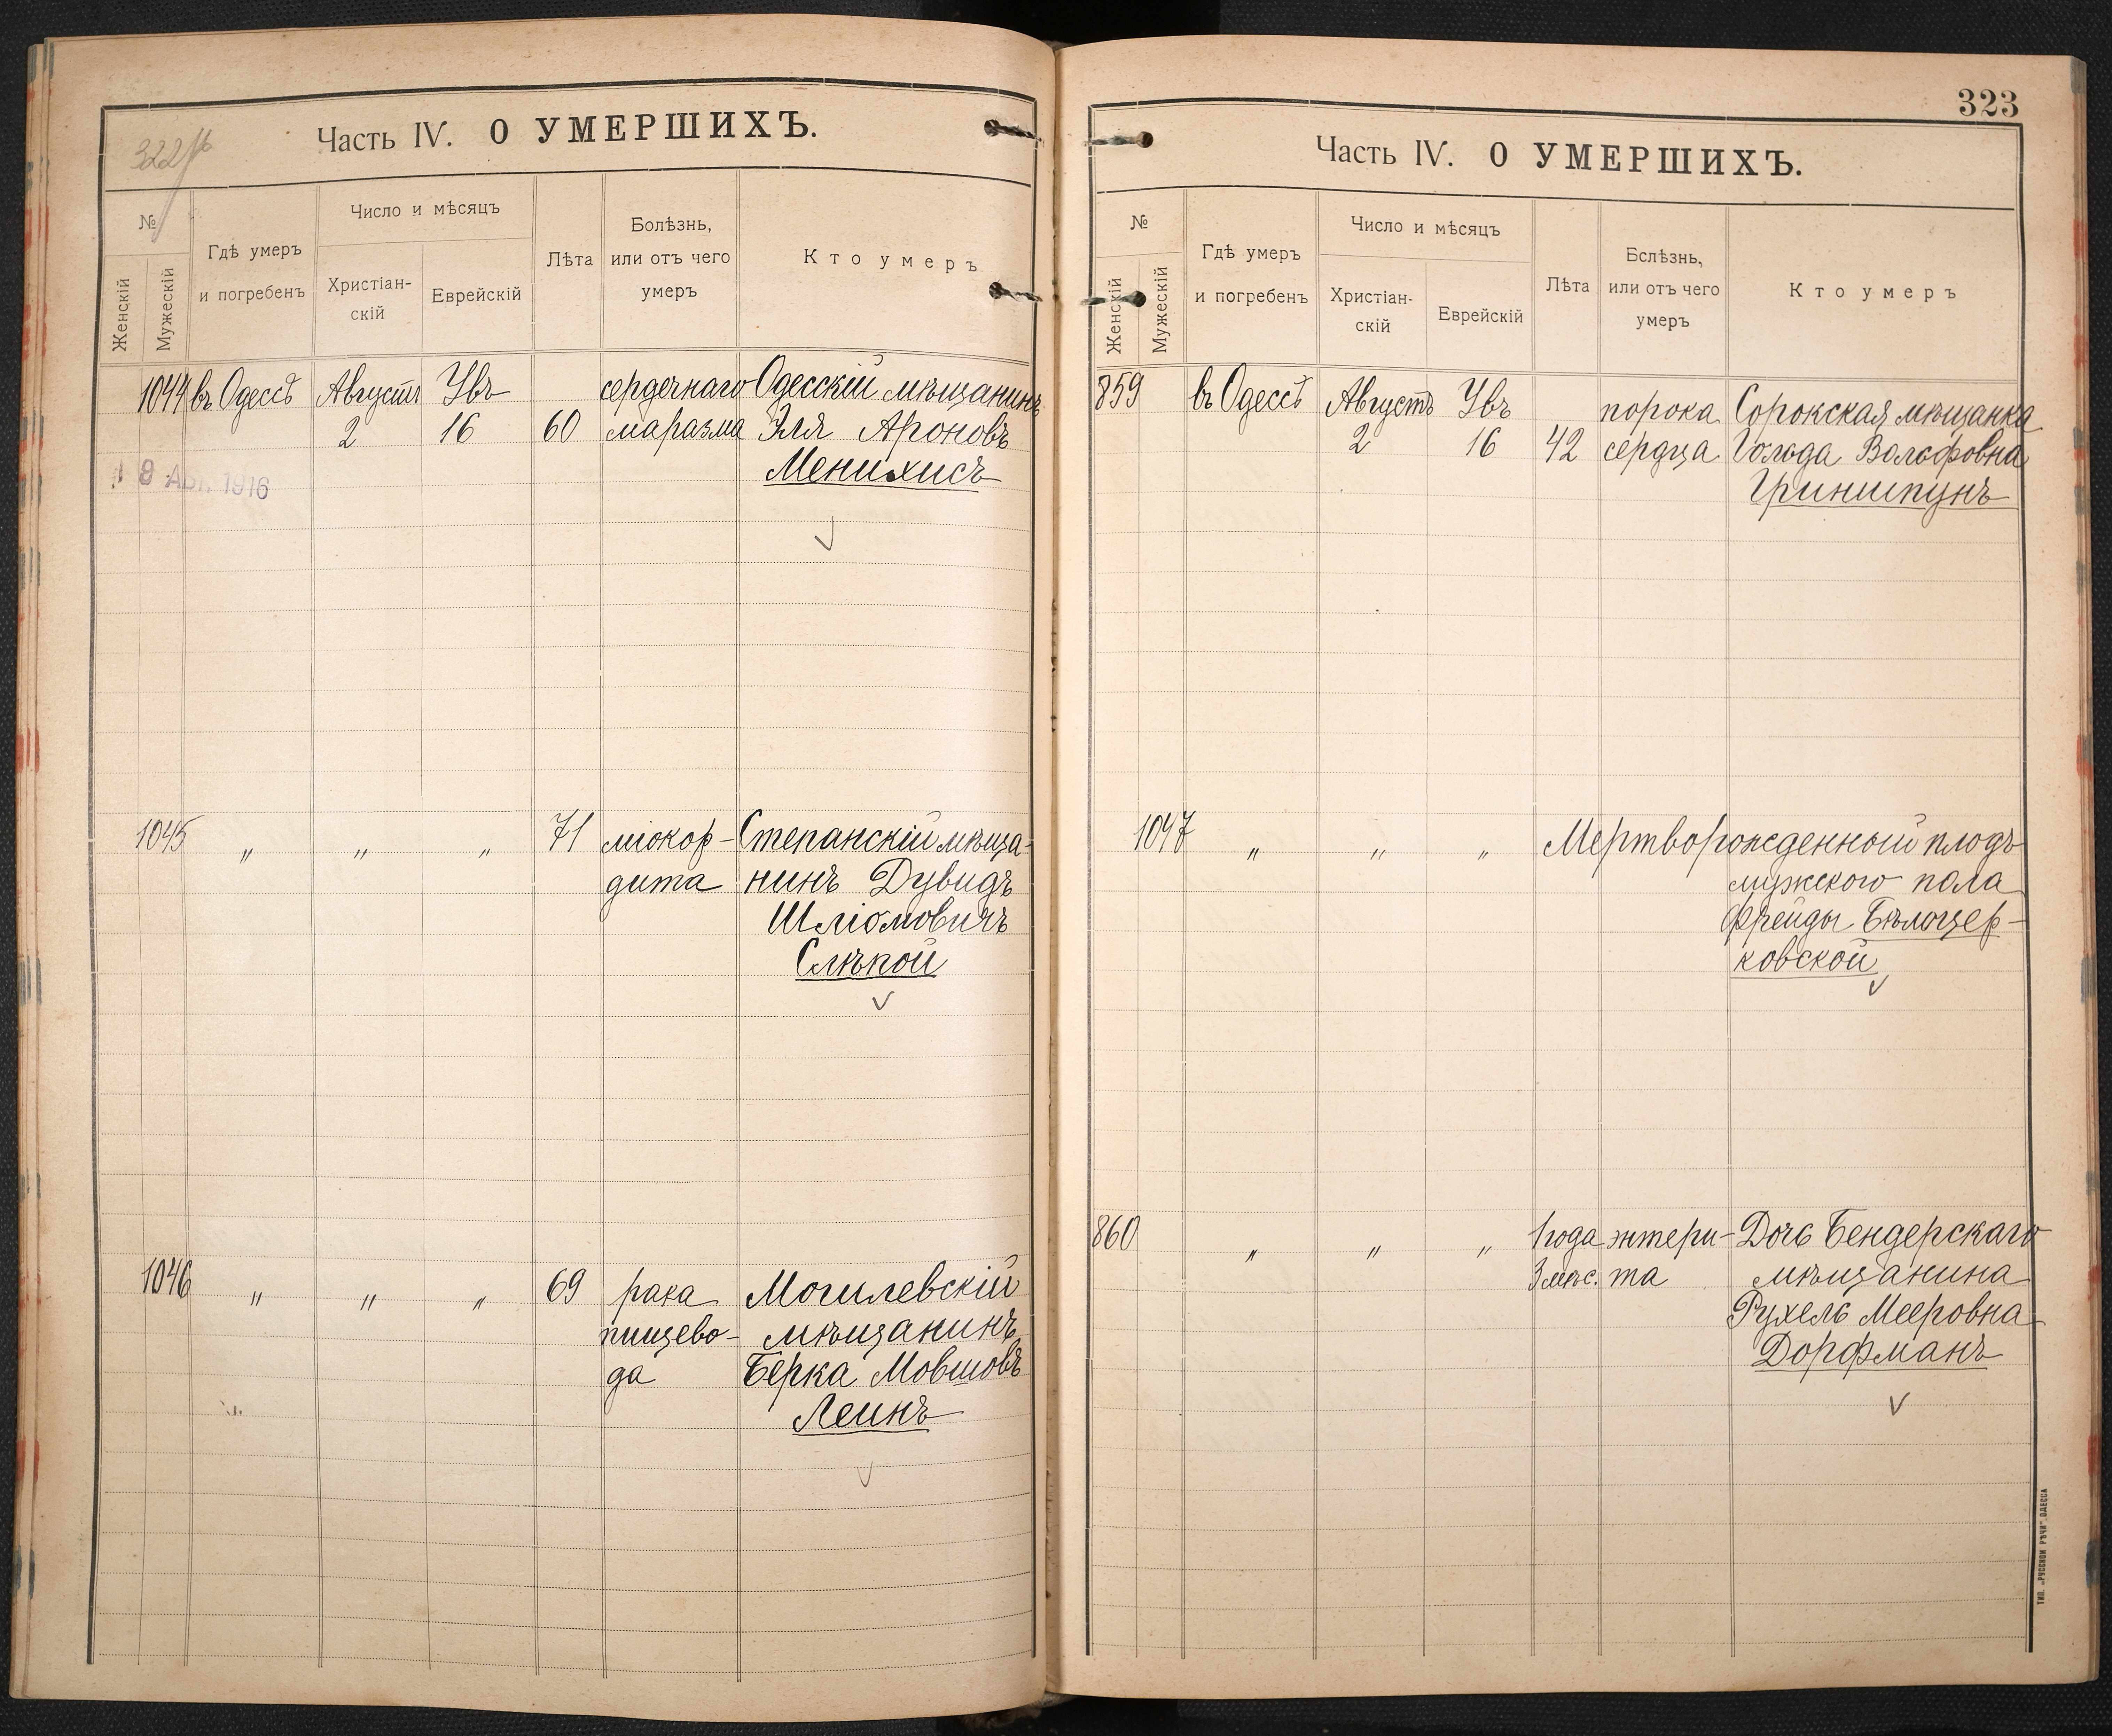 Часть IV. О УМЕРШИХЪ.
№
Женскій
Мужескій
Гдѣ умеръ
и погребенъ
Число и мѣсяцъ
Христіан-
скій
Еврейскій
Лѣта
Болѣзнь,
или отъ чего
умеръ
Кто умеръ
1044 въ Одессѣ Августъ Увъ сердечнаго Одесскій мѣщанинъ
2 16 60 маразма Эля Ароновъ
Менихисъ
1916
1045 " " " 71 міокор- Степанскій мѣща-
дита нинъ Дувидъ
Шліомовичъ
Слѣпой
1046 " " " 69 рака Могилевскій
пищево- мѣщанинъ
да Берка Мовшовъ
Леинъ
323
Часть IV. О УМЕРШИХЪ.
№
Женскій
Мужескій
Гдѣ умеръ
и погребенъ
Число и мѣсяцъ
Христіан-
скій
Еврейскій
Лѣта
Бслѣзнь,
или отъ чего
умеръ
Кто умеръ
859 въ Одессѣ Августъ Увъ порока Сорокская мѣщанка
2 16 42 сердца Гольда Вольфовна
Гриншпунъ
1047 " " " Мертворожденный плодъ
мужского пола
Фрейды Бѣлоцер-
ковской
860 " " " 1 года энтери- Дочь Бендерскаго
3 мѣс. та мѣщанина
Рухель Мееровна
Дорфманъ
ТИП. „РУССКОЙ РѢЧИ“. ОДЕССА